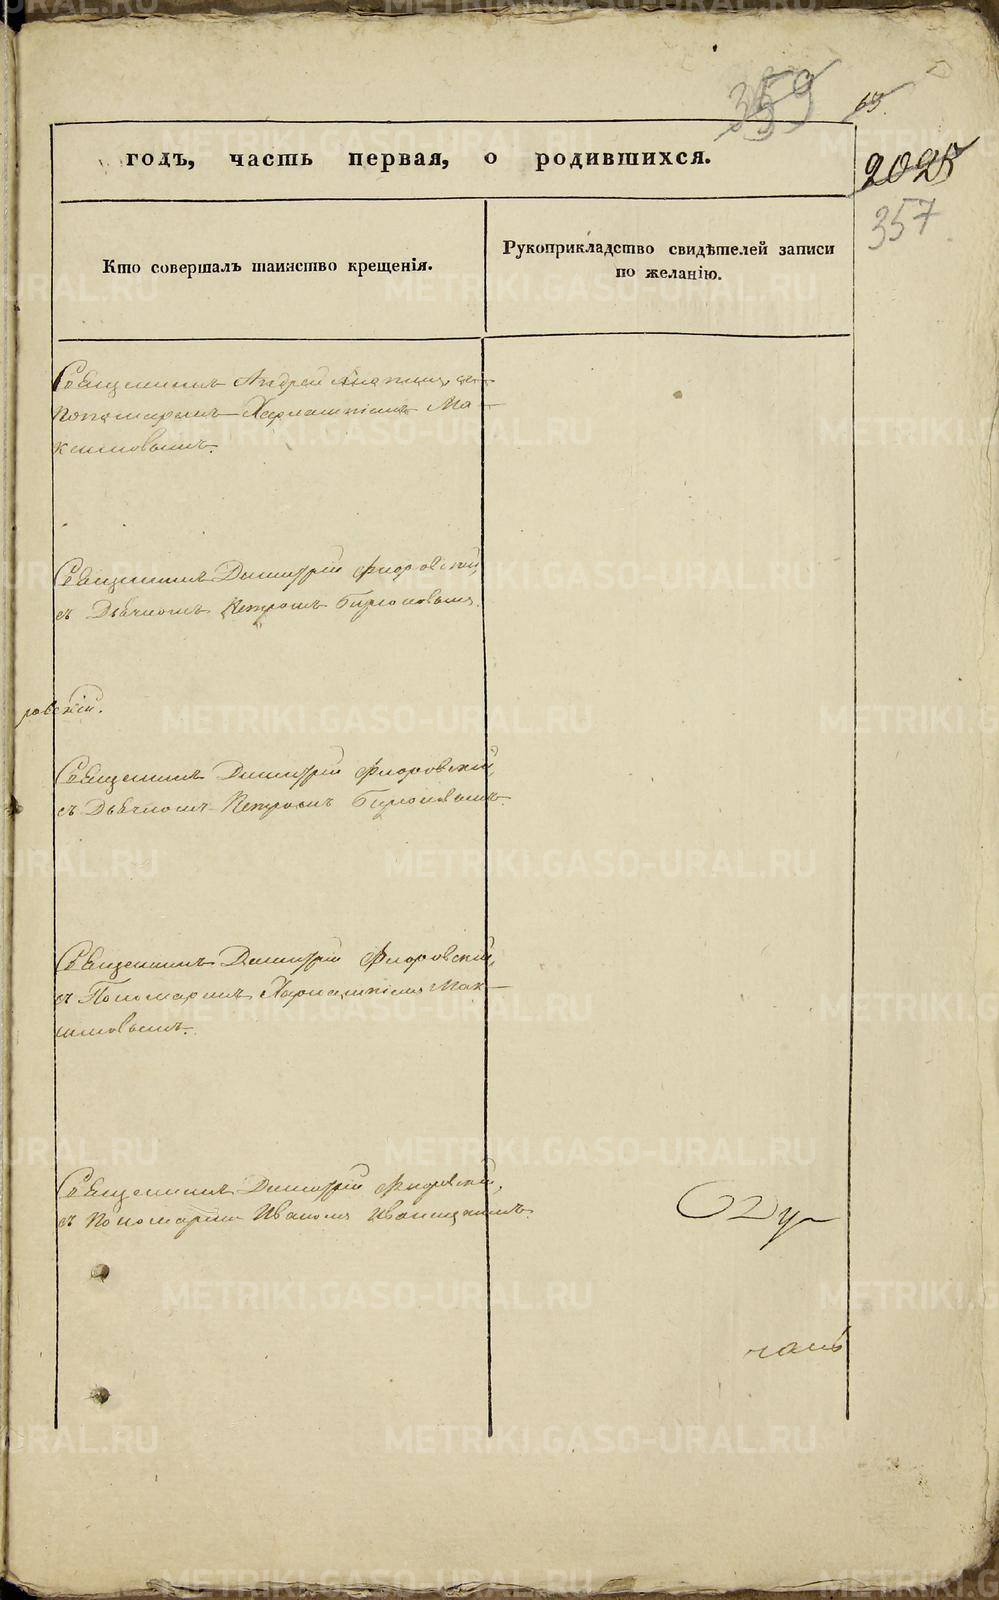 359
63.
годъ, часть первая, о родившихся.
2025
357
Кто совершалъ таинство крещенія.
Рукоприкладство свидѣтелей записи
по желанію.
Священникъ Андрей съ
Пономаремъ Харлампіемъ Ма-
кшиновымъ.
Священникъ Димитрій Флоровскій,
съ Дьячкомъ Петромъ Бирюковымъ.
ровскій.
Священникъ Димитрій Флоровскій,
съ Дьячкомъ Петромъ Бирюковымъ.
Священникъ Димитрій Флоровскій,
съ Пономаремъ Харлампіемъ Мак-
шиновымъ.
Священникъ Димитрій Флоровскій,
съ Пономаремъ Иваномъ
METRIKI.GASO-URAL.RU